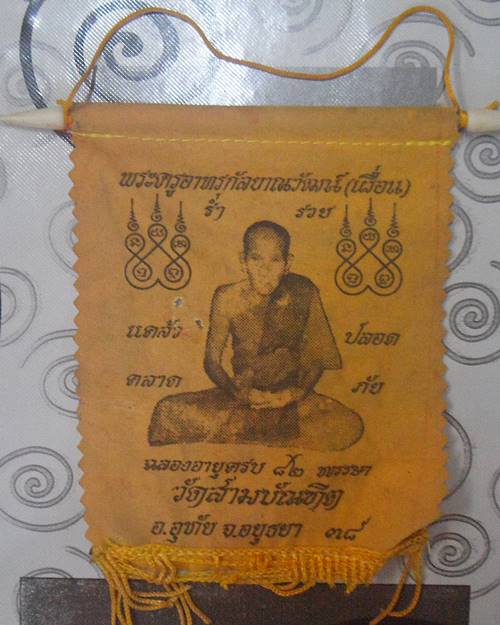 พระครูอาทรกัลยาณวัฒน์ (เผื่อน)
ร่ำ รวย
แคล้ว ปลอด
คลาด ภัย
ฉลองอายุครบ ๘๒ พรรษา
วัดสามบัณฑิต
อ.อุทัย จ.อยุธยา ๓๘